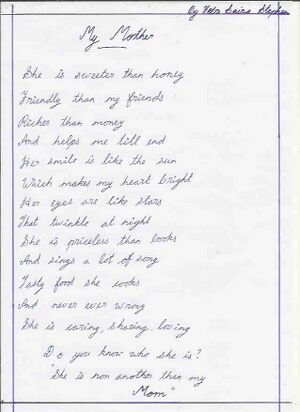 By Saira Stephen
My Mother
She is sweeter than honey
Friendly than my friends
Richer than money
And helps me till end
Her smile is like the sun
Which makes my heart bright
Her eyes are like stars
That twinkle at night
She is priceless than looks
And sings a lot of song
Tasty food she cooks
And never ever wrong
She is caring, sharing, loving
Do you know who she is?
"She is non another than my
Mom"